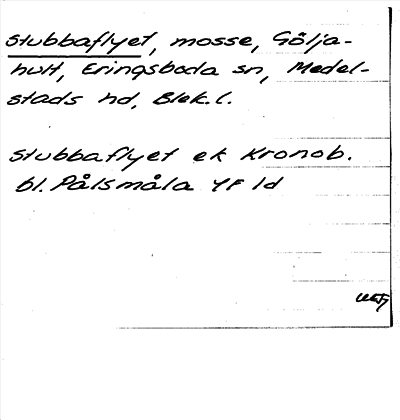 Stubbaflyet, mosse, Gölja-
hult, Eringsboda sn, Medel-
stads hd, Blek.l.
Stubbaflyet ek Kronob.
bl. Pålsmåla YF ld